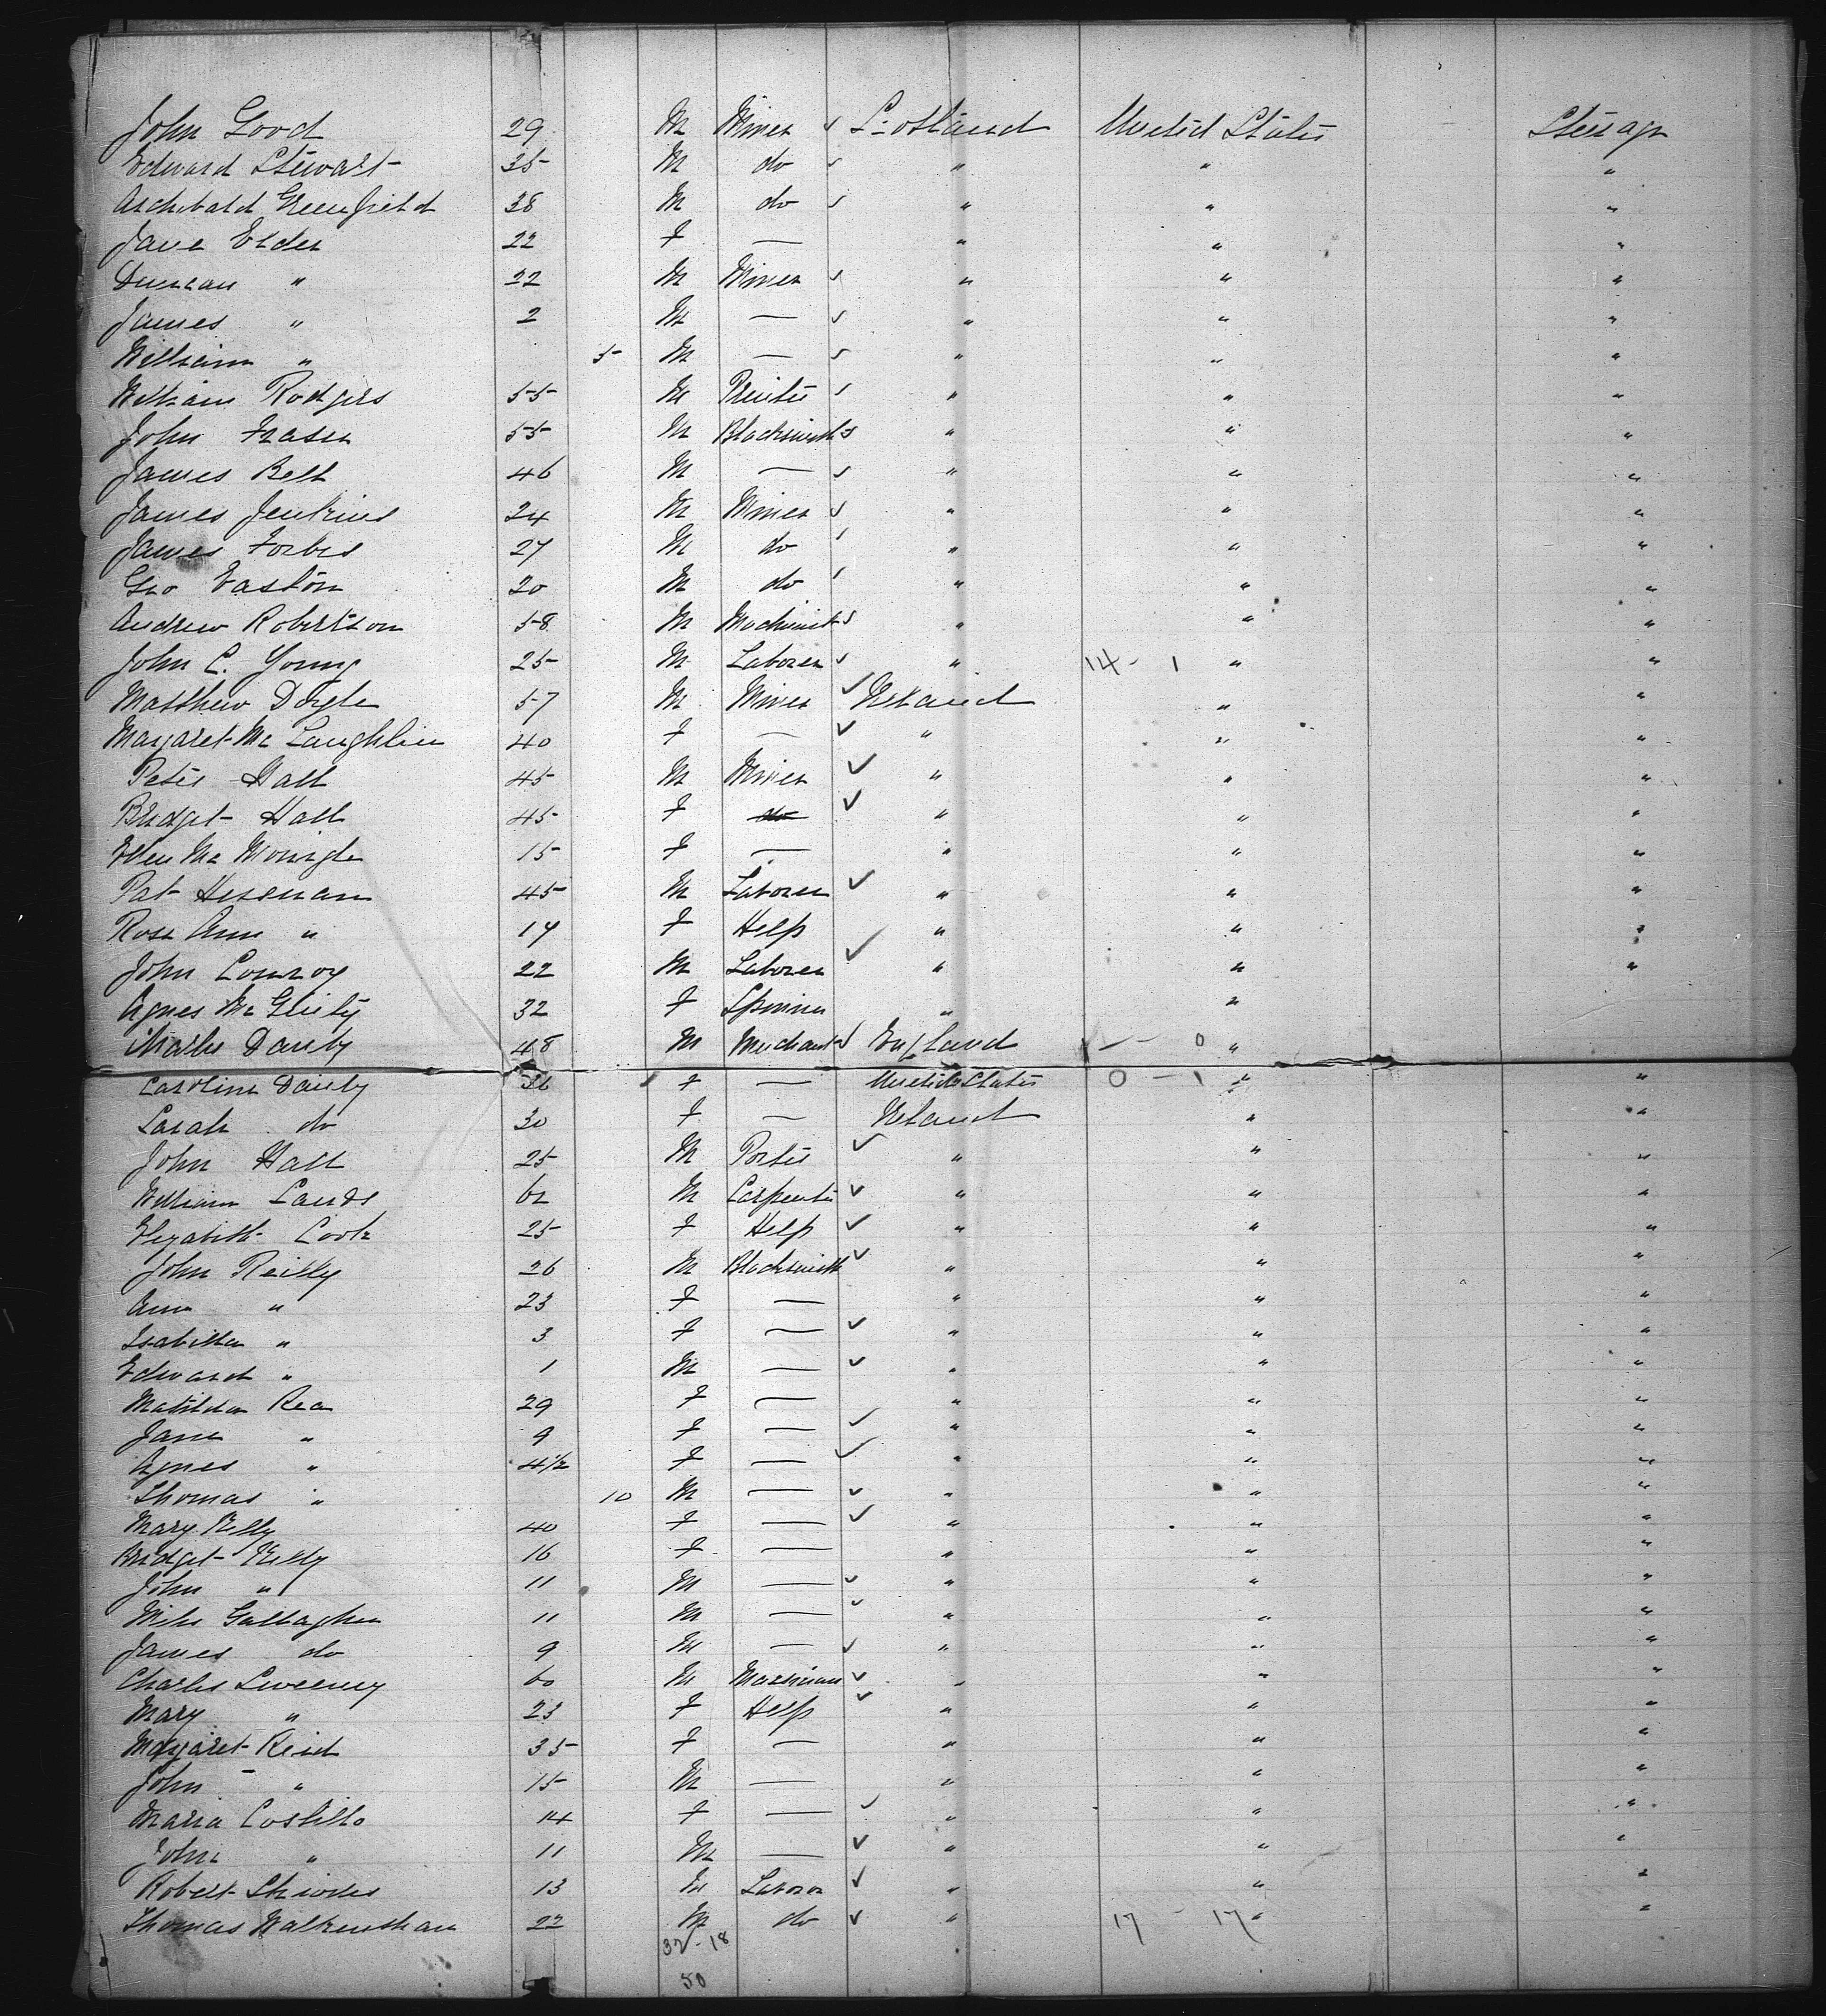 John Good 29 M Miner Scotland United States Steerage
Edward Stewart 35 M do " " "
Archibald Greenfield 38 M do " " "
Jane Elder 22 F — " " "
Duncan " 22 M Miner " " "
James " 2 M — " " "
William " 5 M — " " "
William Rodgers 55 M Printer " " "
John Fraser 55 M Blacksmith " " "
James Bell 46 M — " " "
James Jenkins 24 M Miner " " "
James Forbes 27 M do " " "
Geo Easton 20 M do " " "
Andrew Robertson 58 M Machinist " " "
John C. Young 25 M Laborer " 14 - 1 " "
Matthew Doyle 57 M Miner Ireland " "
Margaret Mc Laughlin 40 F — " " "
Peter Hall 45 M Miner " " "
Bridget Hall 45 F do " " "
Ellen Mc Monigle 15 F — " " "
Pat Heenan 45 M Laborer " " "
Rose Ann " 17 F Help " " "
John Conroy 22 M Laborer " " "
Agnes Mc Ginty 32 F Spinner " "
Charles Danby 48 M Merchant England 1 - 0 "
Caroline Danby 36 F — United States 0 - 1 " "
Sarah do 30 F — Ireland " "
John Hall 25 M Porter " " "
William Lands 62 M Carpenter " " "
Elizabeth Cook 25 F Help " " "
John Reilly 26 M Blacksmith " " "
Ann " 23 F — " " "
Isabella " 3 F — " " "
Edward " 1 M — " " "
Matilda Rea 29 F — " " "
Jane " 9 F — " " "
Agnes " 4½ F — " " "
Thomas " 10 M — " " "
Mary Kelly 40 F — " " "
Bridget Kelly 16 F — " " "
John " 11 M — " " "
Miles Gallagher 11 M — " " "
James do 9 M — " " "
Charles Sweeney 60 M " " "
Mary " 23 F Help " " "
Margaret Reid 35 F — " " "
John " 15 M — " " "
Maria Costillo 14 F — " " "
John " 11 M — " " "
Robert 13 M Laborer " " "
Thomas Walkenshaw 22 M do " 17 - 17 " "
32 - 18
50